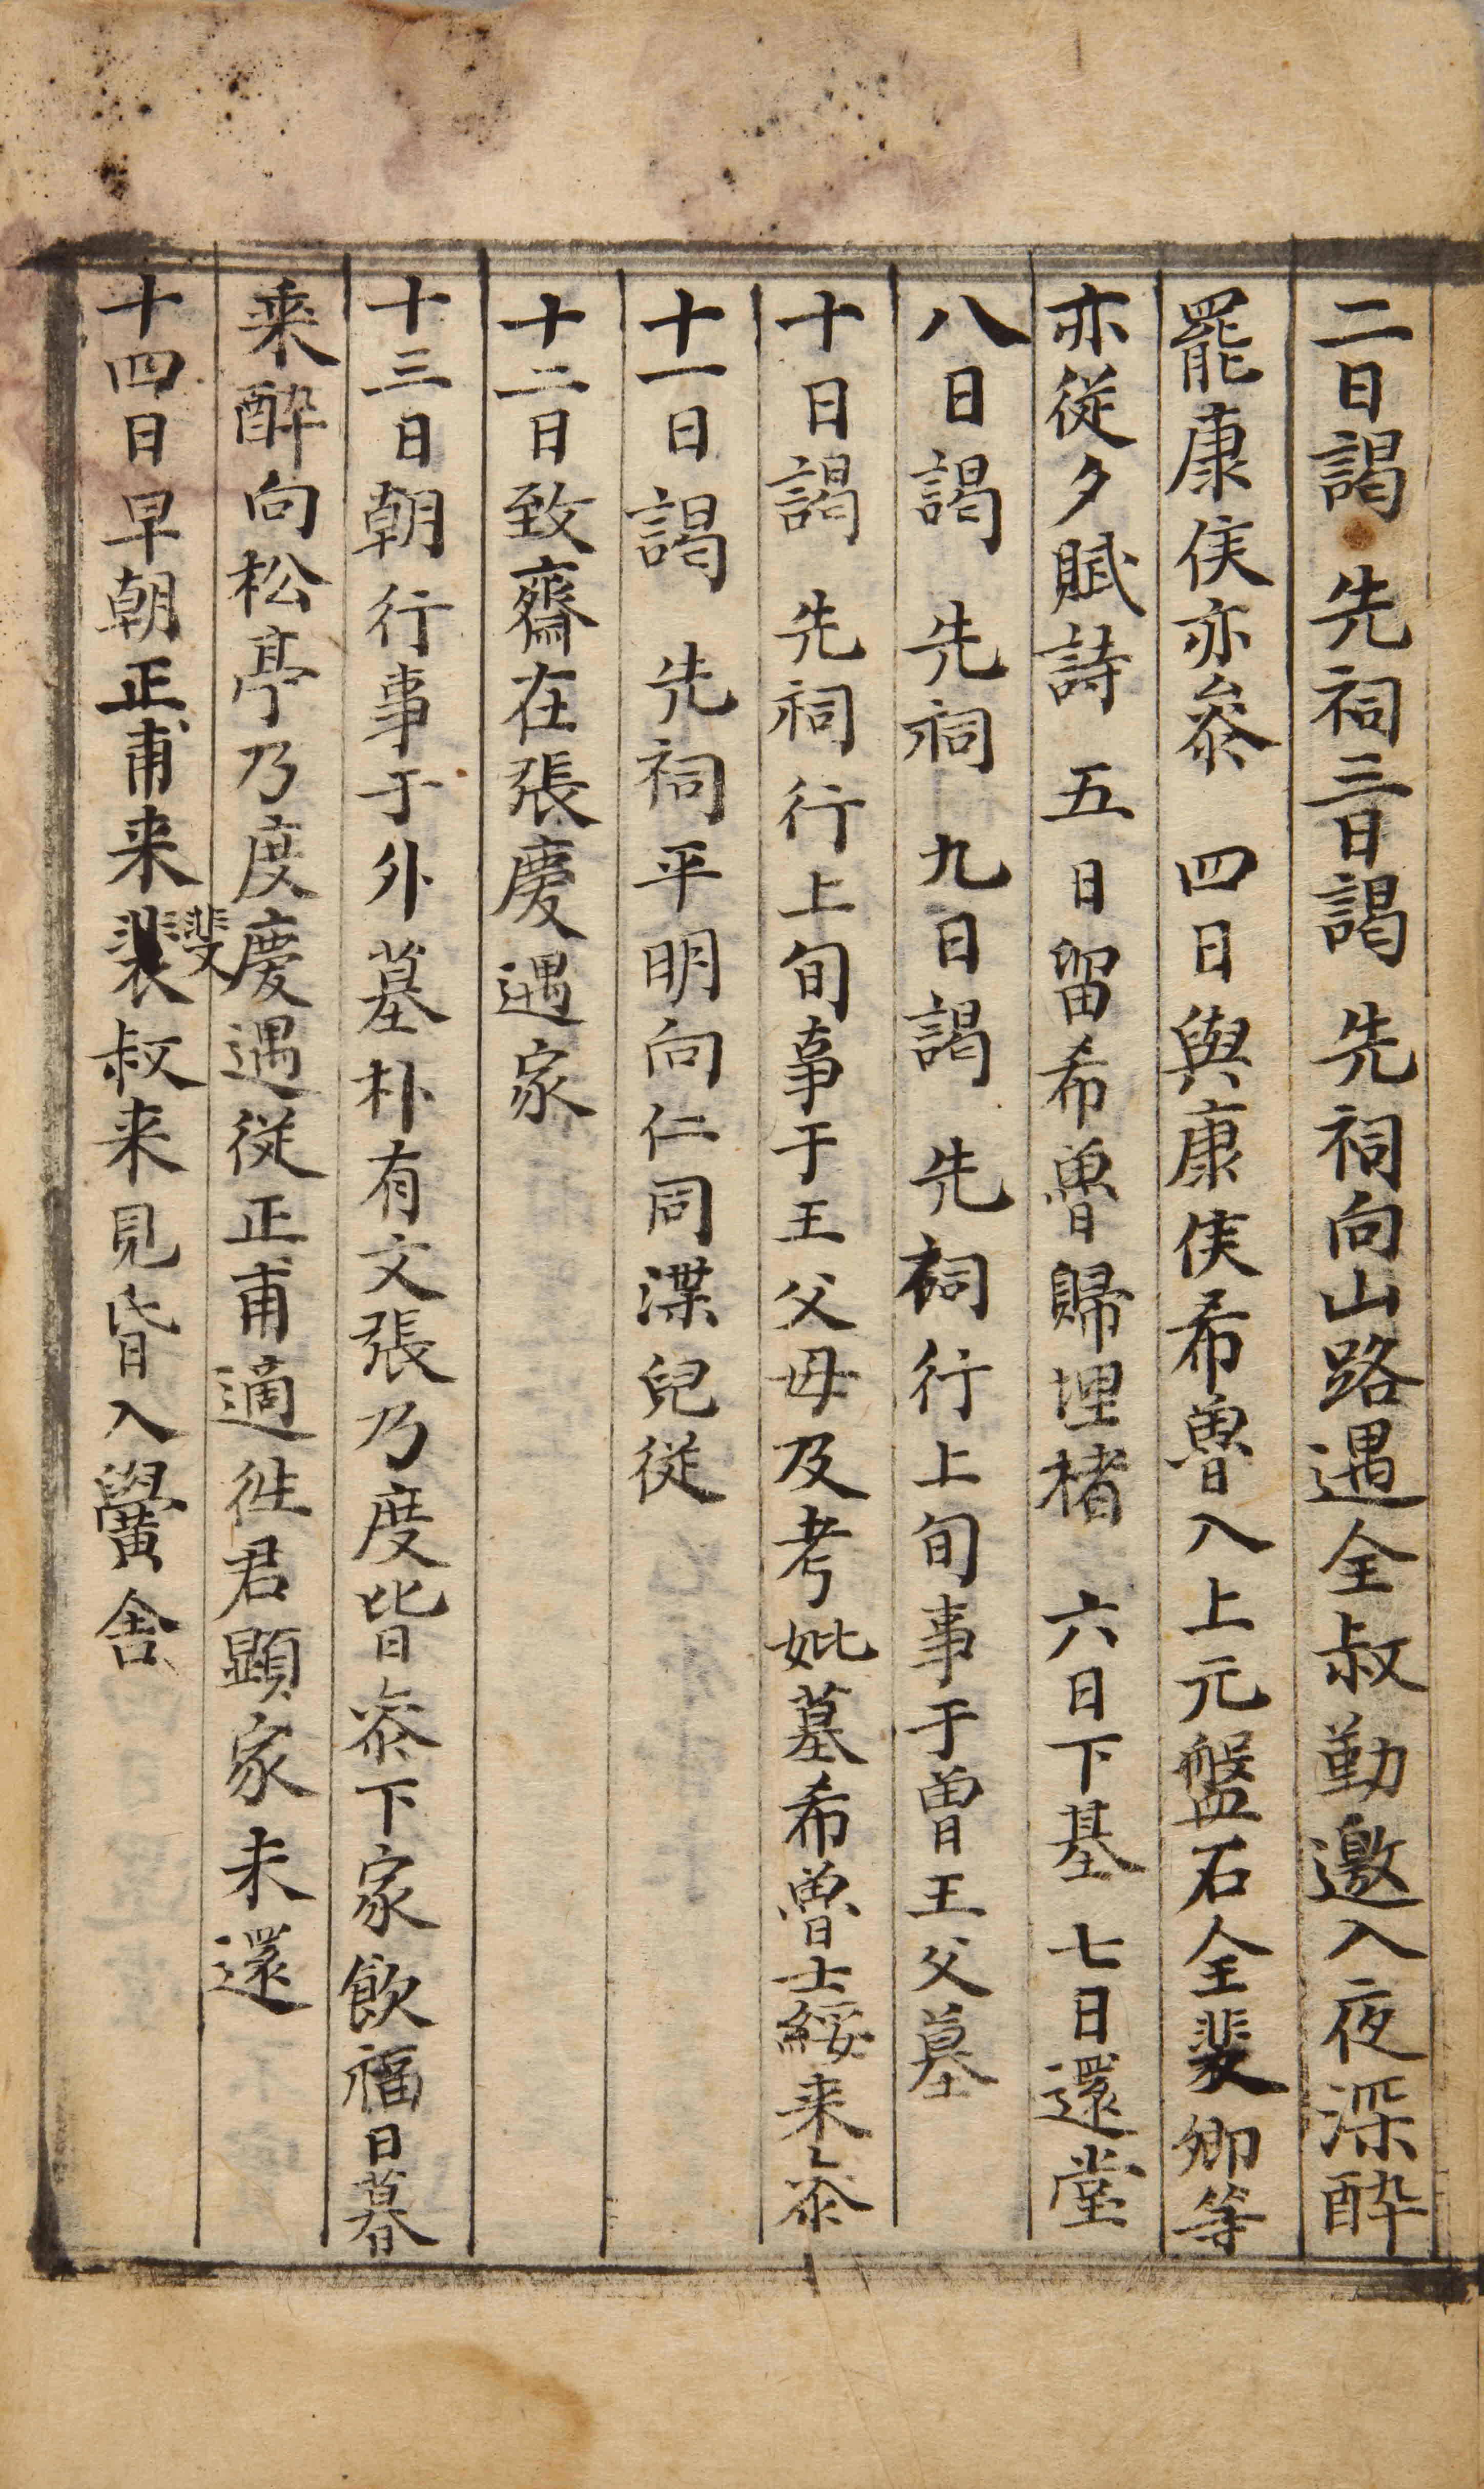 二日謁 先祠三日謁 先祠向山路遇全叔勤邀入夜深醉
罷康侯亦叅 四日與康侯希魯入上元盤石全裴卿等
亦從夕賦詩 五日留希魯歸埋楮 六日下基 七日還堂
八日謁 先祠 九日謁 先祠行上旬事于曽王父墓
十日謁 先祠行上旬事于王父母及考妣墓希魯士綏来叅
十一日謁 先祠平明向仁同渫兒從
十二日致齋在張慶遇家
十三日朝行事于外墓朴有文張乃度皆叅下家飮福日暮
乘醉向松亭乃度慶遇從正甫適徃君顕家未還
十四日早朝正甫来裴叔来見昏入黌舍
斐